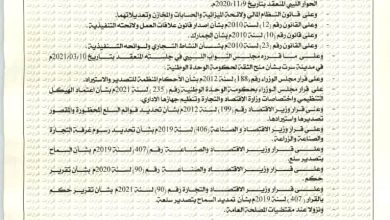 الحوار الليبي المنعقد بتاريخ 2020/11/9م.
وعلى قانون النظام المالي ولائحة الميزانية والحسابات والمخازن وتعديلاتهما.
وعلى القانون رقم 12 لسنة 2010م بشأن إصدار قانون علاقات العمل ولائحته التنفيذية.
وعلى قانون رقم 10 لسنة 2010م بشأن الجمارك.
وعلى القانون رقم 23 لسنة 2010م بشأن النشاط التجاري ولوائحه التنفيذية.
وعلى ما قرره مجلس النواب الليبي في جلسته المنعقد بتاريخ 2021/03/10م
في مدينة سرت بشأن منح الثقة لحكومة الوحدة الوطنية.
وعلى قرار مجلس الوزراء رقم 188 لسنة 2012م بشأن الأحكام المنظمة للتصدير والاستيراد.
وعلى قرار مجلس الوزراء بحكومة الوحدة الوطنية رقم 235 لسنة 2021م بشأن اعتماد الهيكل
التنظيمي واختصاصات وزارة الاقتصاد والتجارة وتنظيم جهازها الإداري.
وعلى قرار وزير الاقتصاد رقم 199 لسنة 2012م بشأن تحديد قوائم السلع المحظورة والمقصور
تصديرها واستيرادها.
وعلى قرار وزير الاقتصاد و الصناعة رقم 406 لسنة 2019م بشأن تحديد رسوم غرفة التجارة
والصناعة والزراعة.
وعلى قرار وزير الاقتصاد والصناعة رقم 407 لسنة 2019م بشأن السماح
بتصدير سلع.
وعلى قرار وزير الاقتصاد والصناعة رقم 90 لسنة 2020م بشأن تقرير
حكم.
وعلى قرار وزير الاقتصاد والتجارة رقم 90 لسنة 2021م بشأن تقرير حكم
بالقرار 407 لسنة 2019م بشأن تمديد السماح بتصدير سلعة.
ونزولا عند مقتضيات المصلحة العامة.